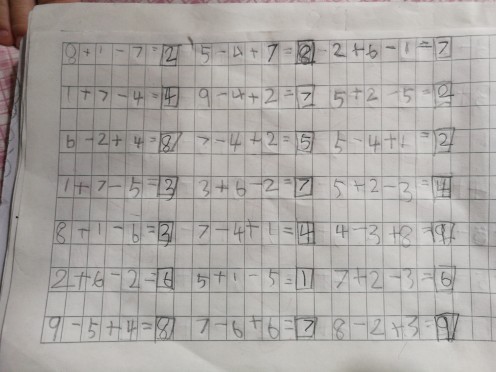 8+1-7=2 5-4+7=8 2+6-1=7
1+7-4=4 9-4+2=7 5+2-5=2
6-2+4=8 7-4+2=5 5-4+1=2
1+7-5=3 3+6-2=7 5+2-3=4
8+1-6=3 7-4+1=4 4-3+8=9
2+6-2=6 5+1-5=1 7+2-3=6
9-5+4=8 7-6+6=7 8-2+3=9